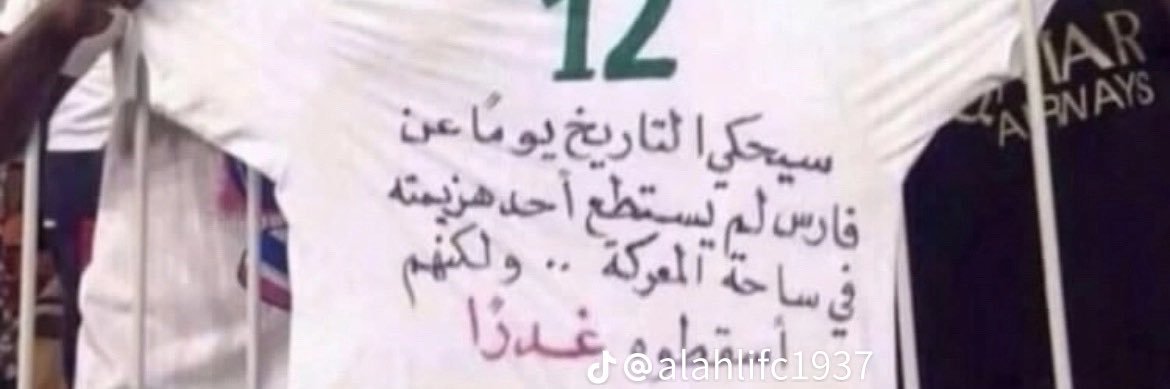 12
سيحكي التاريخ يومًا عن
فارس لم يستطع أحد هزيمته
في ساحة المعركة .. ولكنهم
أسقطوه غدرًا
AIRWAYS
@alahlifc1937